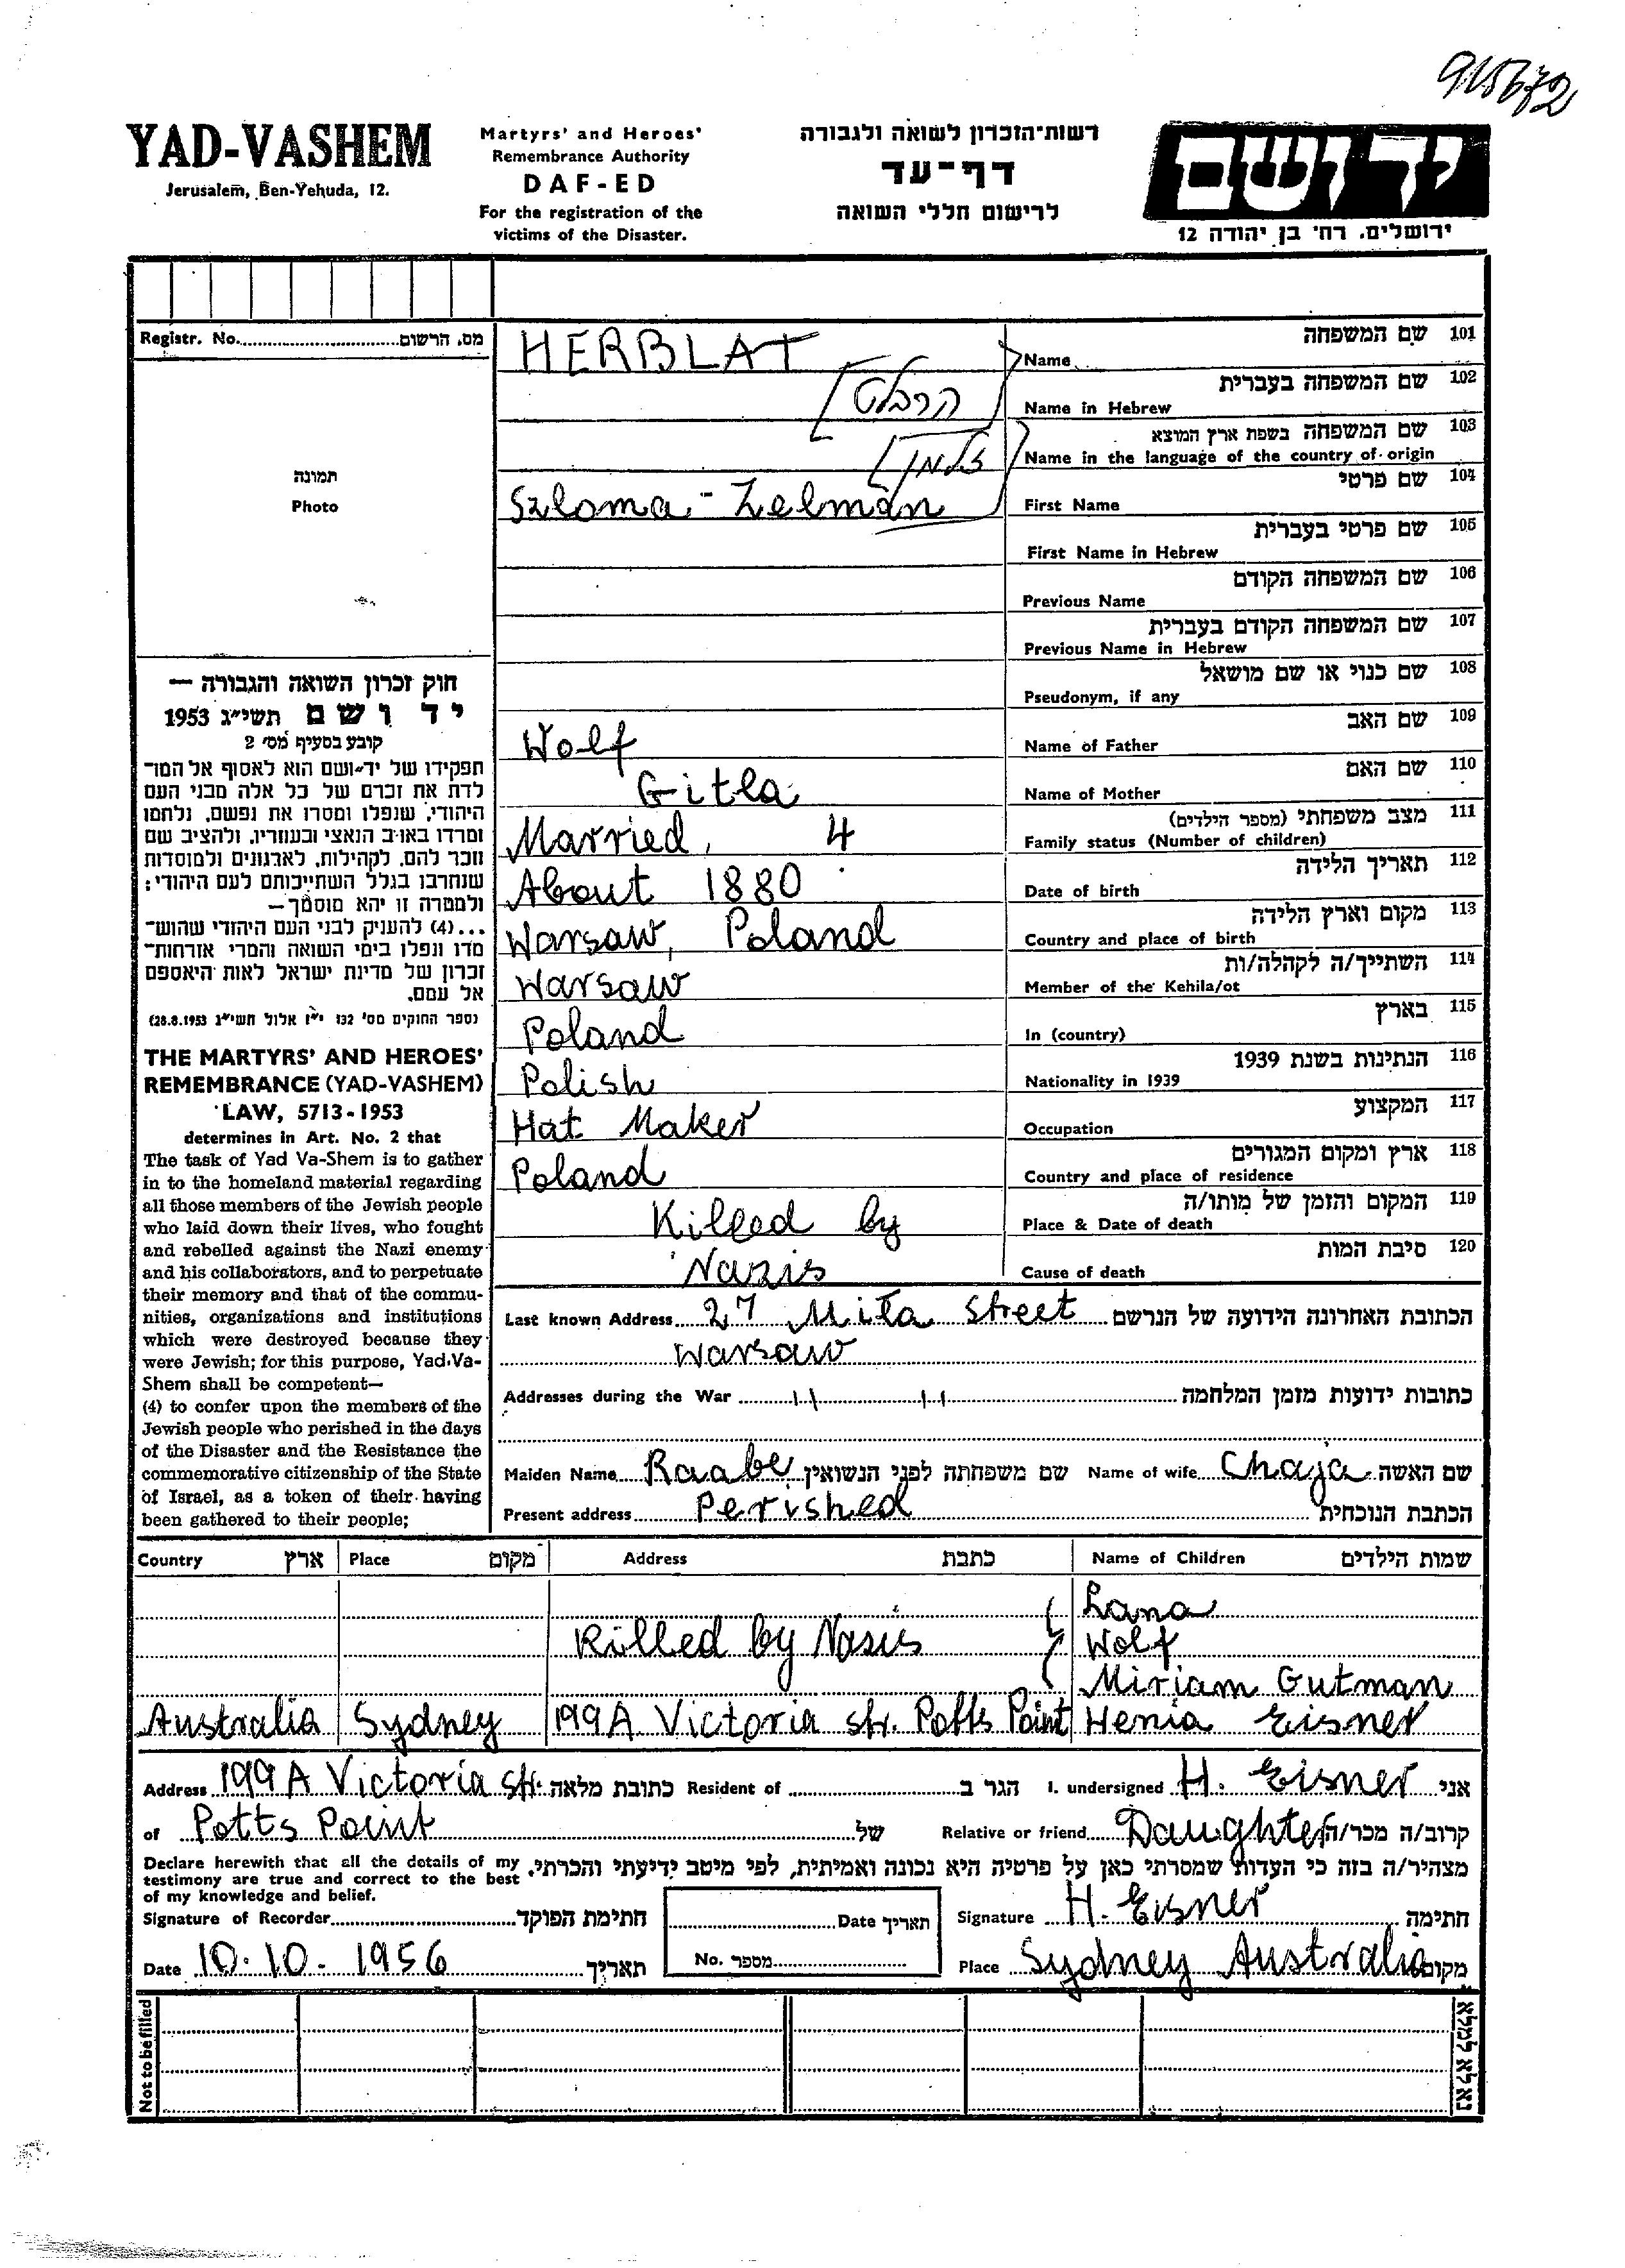 915672
YAD-VASHEM
Jerusalem, Ben-Yehuda, 12.
Martyrs' and Heroes'
Remembrance Authority
DAF-ED
For the registration of the
victims of the Disaster.
רשות-הזכרון לשואה ולגבורה
דף-עד
לרישום חללי השואה
יד ושם
ירושלים, רח' בן יהודה 12
Registr. No. מס. הרשום
תמונה
Photo
חוק זכרון השואה והגבורה —
יד ושם תשי"ג 1953
קובע בסעיף מס' 2
תפקידו של יד-ושם הוא לאסוף אל המו־
לדת את זכרם של כל אלה מבני העם
היהודי, שנפלו ומסרו את נפשם, נלחמו
ומרדו באויב הנאצי ובעוזריו, ולהציב שם
וזכר להם, לקהילות, לארגונים ולמוסדות
שנחרבו בגלל השתייכותם לעם היהודי;
ולמטרה זו יהא מוסמך—
...(4) להעניק לבני העם היהודי שהוש־
מדו ונפלו בימי השואה והמרי אזרחות־
זכרון של מדינת ישראל לאות היאספם
אל עמם.
(ספר החוקים מס' 132 י"ז אלול תשי"ג 28.8.1953)
THE MARTYRS' AND HEROES'
REMEMBRANCE (YAD-VASHEM)
LAW, 5713-1953
determines in Art. No. 2 that
The task of Yad Va-Shem is to gather
in to the homeland material regarding
all those members of the Jewish people
who laid down their lives, who fought
and rebelled against the Nazi enemy
and his collaborators, and to perpetuate
their memory and that of the commu-
nities, organizations and institutions
which were destroyed because they
were Jewish; for this purpose, Yad-Va-
Shem shall be competent—
(4) to confer upon the members of the
Jewish people who perished in the days
of the Disaster and the Resistance the
commemorative citizenship of the State
of Israel, as a token of their having
been gathered to their people;
101 שם המשפחה
HERBLAT Name
102 שם המשפחה בעברית
[הרבלט Name in Hebrew
103 שם המשפחה בשפת ארץ המוצא
[זלמן Name in the language of the country of origin
104 שם פרטי
Szloma - Zelman First Name
105 שם פרטי בעברית
First Name in Hebrew
106 שם המשפחה הקודם
Previous Name
107 שם המשפחה הקודם בעברית
Previous Name in Hebrew
108 שם כנוי או שם מושאל
Pseudonym, if any
109 שם האב
Wolf Name of Father
110 שם האם
Gitla Name of Mother
111 מצב משפחתי (מספר הילדים)
Married, 4 Family status (Number of children)
112 תאריך הלידה
About 1880 Date of birth
113 מקום וארץ הלידה
Warsaw, Poland Country and place of birth
114 השתייך/ה לקהלה/ות
Warsaw Member of the Kehila/ot
115 בארץ
Poland In (country)
116 הנתינות בשנת 1939
Polish Nationality in 1939
117 המקצוע
Hat Maker Occupation
118 ארץ ומקום המגורים
Poland Country and place of residence
119 המקום והזמן של מותו/ה
Killed by Place & Date of death
120 סיבת המות
Nazis Cause of death
Last known Address 27 Miła Street הכתובת האחרונה הידועה של הנרשם
Warsaw
Addresses during the War " " כתובות ידועות מזמן המלחמה
Maiden Name Raabe שם משפחתה לפני הנשואין Name of wife Chaja שם האשה
Present address Perished הכתבת הנוכחית
Country ארץ Place מקום Address כתבת Name of Children שמות הילדים
Lana
Killed by Nazis Wolf
Miriam Gutman
Australia Sydney 199A Victoria str. Potts Point Henia Eisner
Address 199A Victoria str. כתובת מלאה Resident of הגר ב I. undersigned H. Eisner אני
of Potts Point של Relative or friend Daughter קרוב/ה מכר/ה
Declare herewith that all the details of my
testimony are true and correct to the best
of my knowledge and belief.
מצהיר/ה בזה כי העדות שמסרתי כאן על פרטיה היא נכונה ואמיתית, לפי מיטב ידיעתי והכרתי.
Signature of Recorder חתימת הפוקד Date תאריך Signature H. Eisner חתימה
Date 10.10.1956 תאריך No. מספר Place Sydney Australia מקום
Not to be filled נא לא למלא